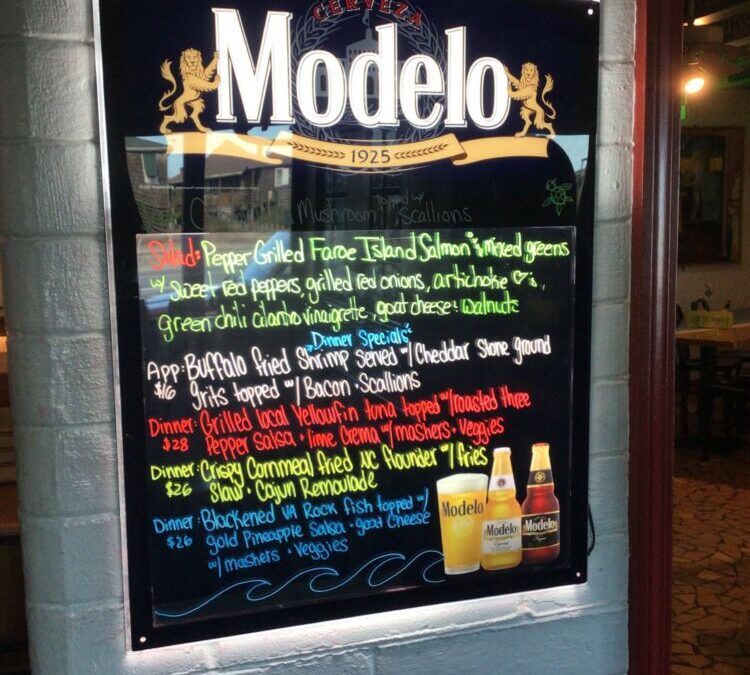 CERVEZA
Modelo
1925
Mushroom topped w/ scallions
Salad: Pepper Grilled Faroe Island Salmon mixed greens
w/ sweet red peppers, grilled red onions, artichoke ♡'s,
green chili cilantro vinaigrette, goat cheese + walnuts
Dinner Specials
App: Buffalo fried Shrimp served w/ Cheddar Stone ground
$16 grits topped w/ Bacon · Scallions
Dinner: Grilled local Yellowfin tuna topped w/ roasted three
$28 Pepper Salsa + lime Crema w/ mashers · Veggies
Dinner: Crispy Cornmeal fried NC flounder w/ fries
$26 Slaw · Cajun Remoulade
Dinner: Blackened VA Rock fish topped w/
$26 gold Pineapple Salsa · goat Cheese
w/ mashers · Veggies
Modelo
Modelo
Especial
Modelo
Negra